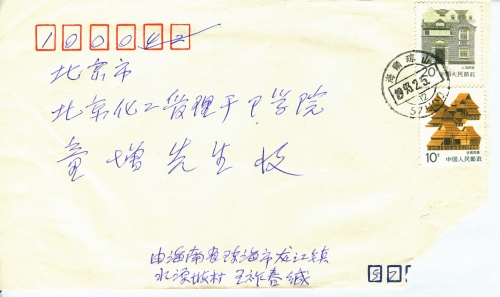 100042
北京市
北京化工管理干部学院
童增先生收
由海南省琼海市龙江镇
水源坡村 王祚春缄
57
20
中国人民邮政
10分
中国人民邮政
海南琼山
1993.2.5